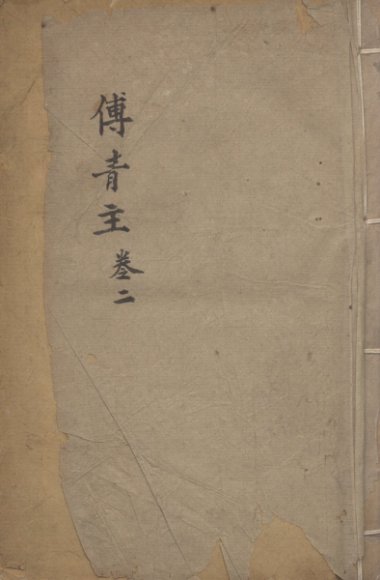 傅青主卷二